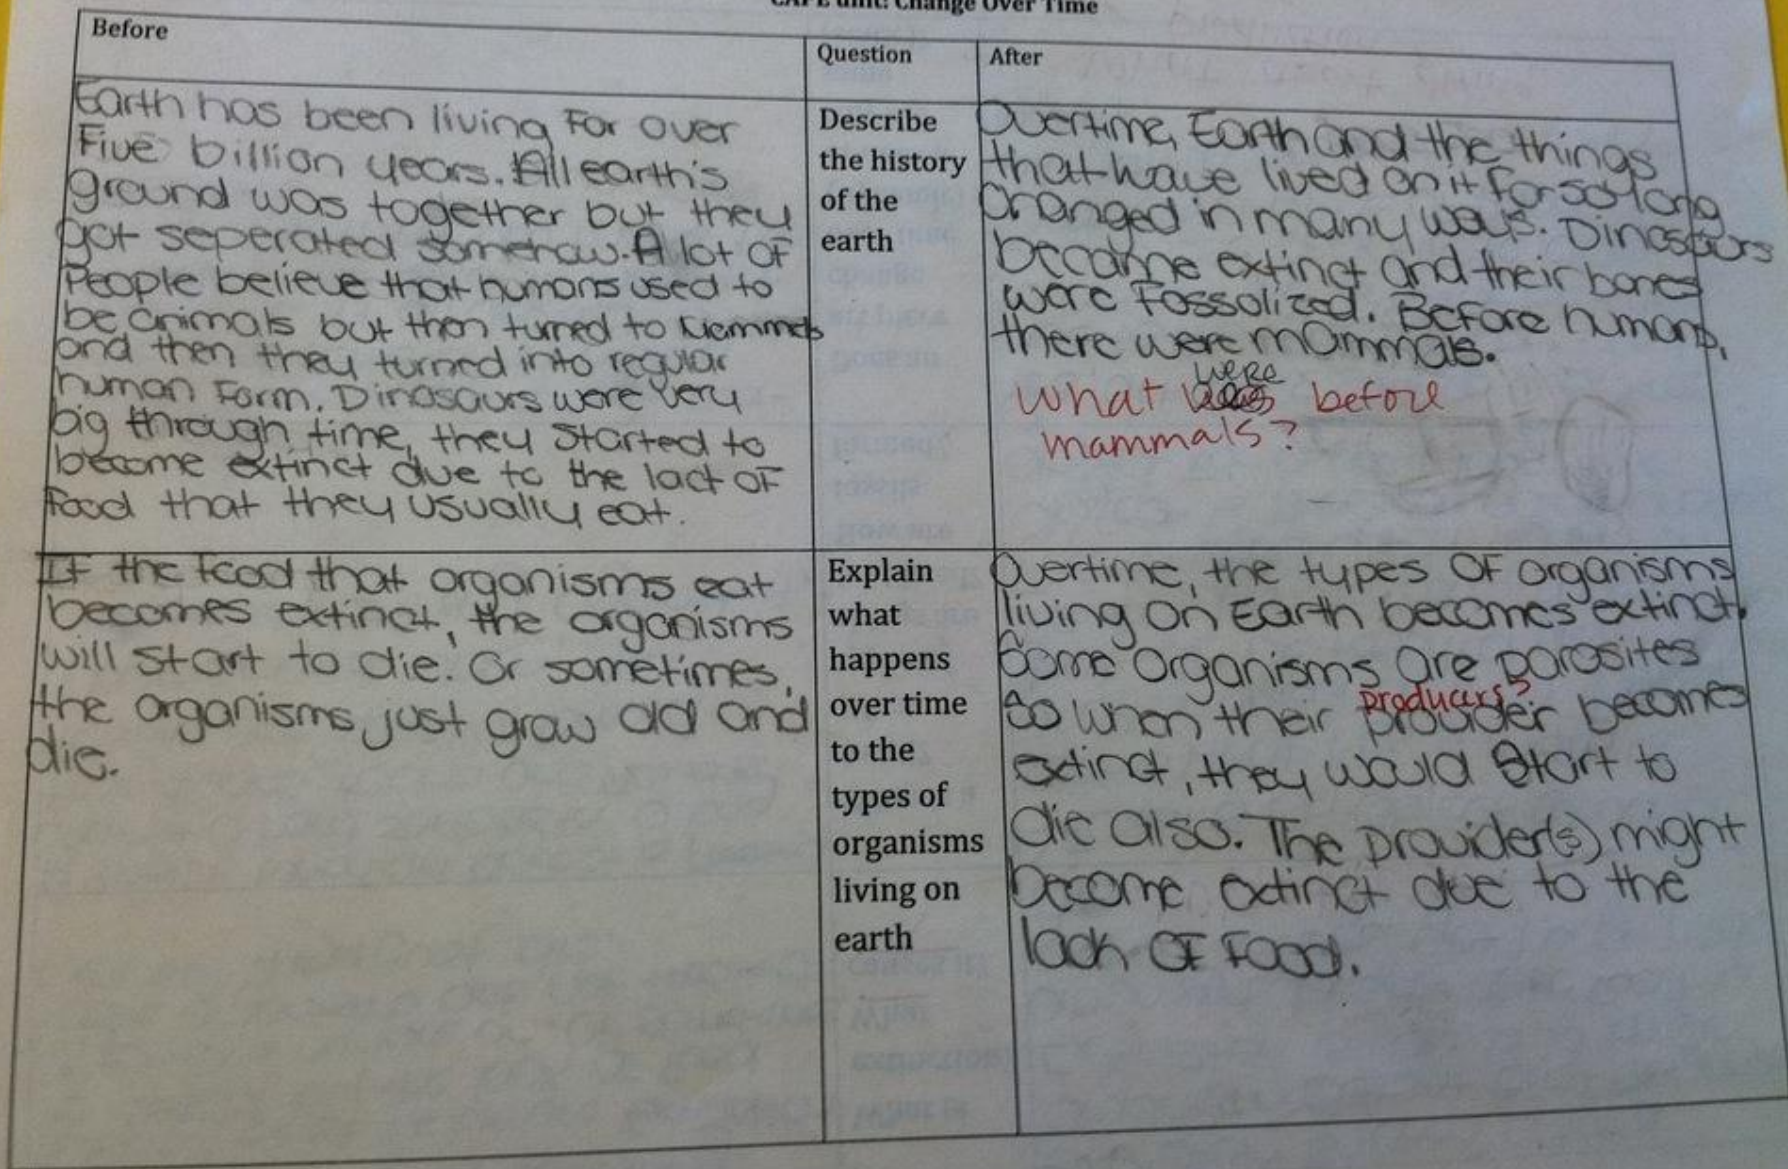 Unit: Change Over Time
Before
Question
After
Earth has been living For over
Five billion years. All earth's
ground was together but they
got seperated somehow. A lot OF
People believe that humans used to
be animals but then turned to
and then they turned into regular
human Form. Dinosaurs were very
big through time, they started to
become extinct due to the lact OF
Food that they usually eat.
Describe
the history
of the
earth
Overtime, Earth and the things
that have lived on it for so long
changed in many ways. Dinosaurs
became extinct and their bones
were Fossolized. Before humans,
there were mammals.
were
What before
mammals?
IF the Food that organisms eat
becomes extinct, the organisms
will start to die. Or sometimes,
the organisms just grow old and
die.
Explain
what
happens
over time
to the
types of
organisms
living on
earth
Overtime, the types OF organisms
living on Earth becomes extinct.
Some organisms are parosites
producers?
So when their provider becomes
extinct, they would start to
die also. The provider(s) might
become extinct due to the
lack OF Food.